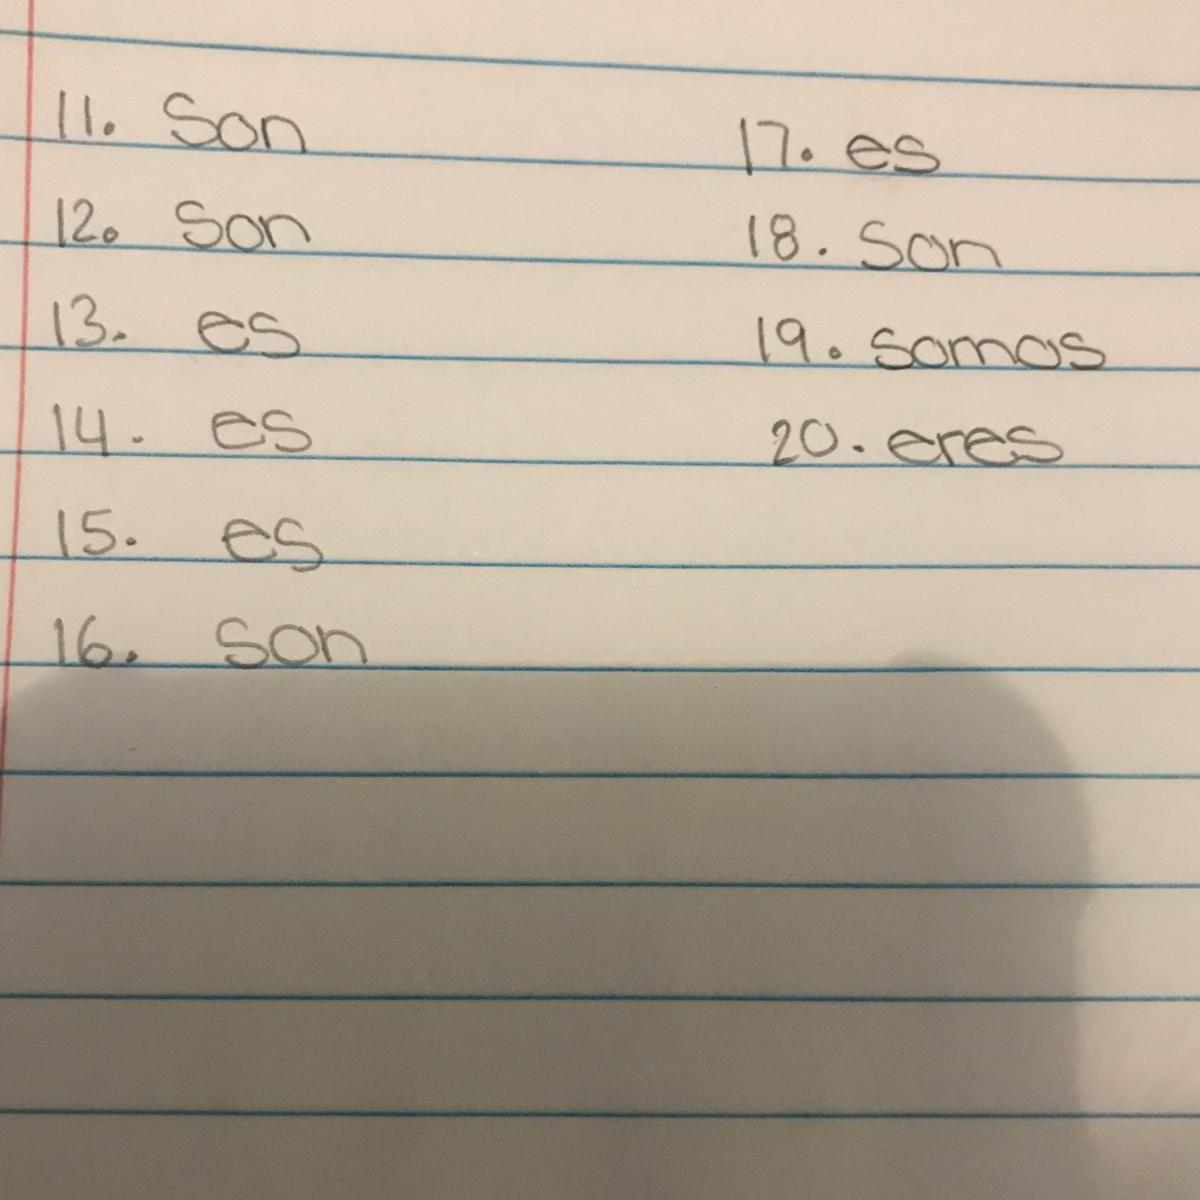 11. Son
12. Son
13. es
14. es
15. es
16. son
17. es
18. Son
19. somos
20. eres